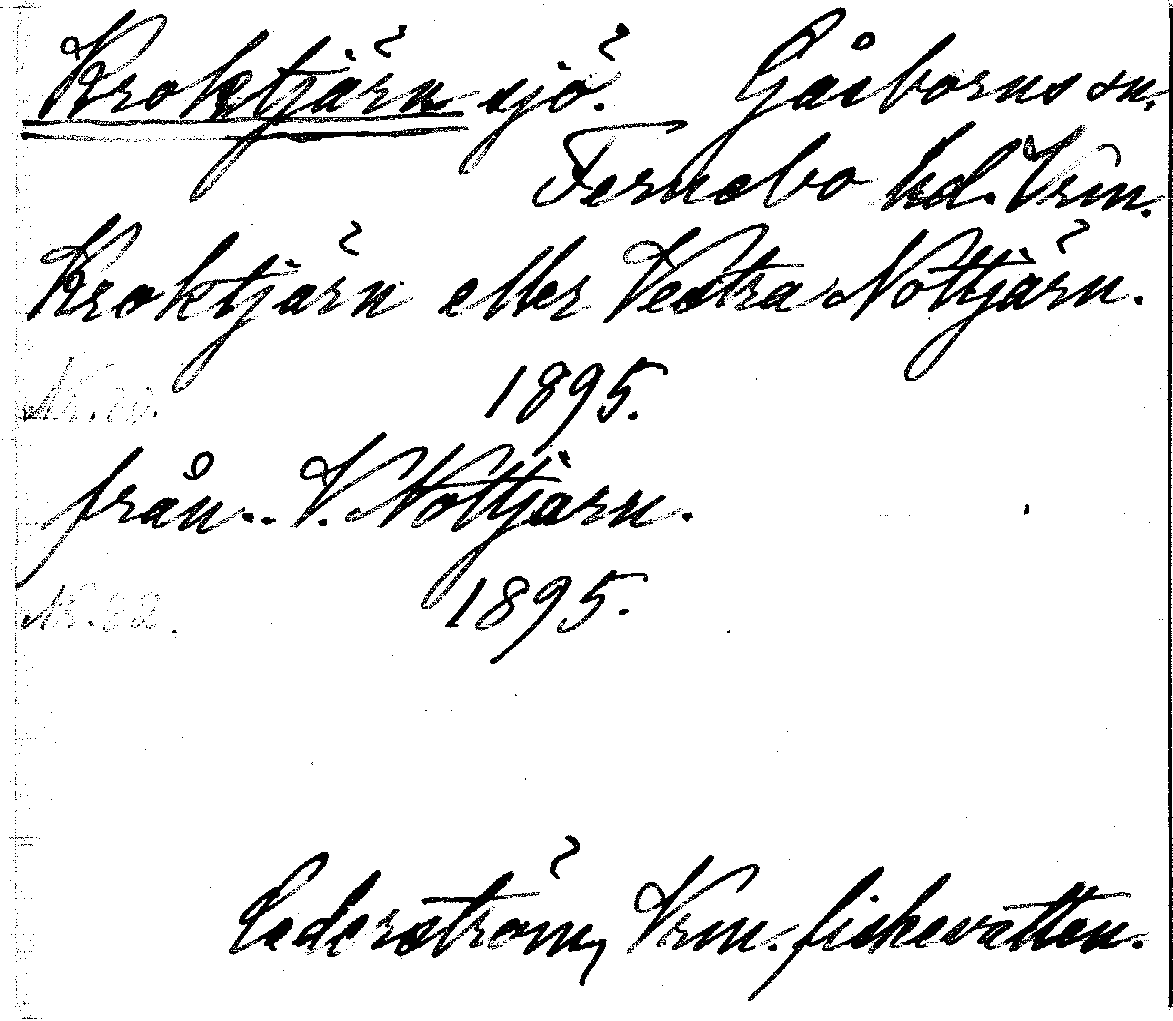 Kroktjärn sjö. Gåsborns sn.
Fernebo hd. Vrm.
Kroktjärn eller Vestra Nottjärn.
1895.
från.. V. Nottjärn.
1895.
Cederström, Vrm. fiskevatten.